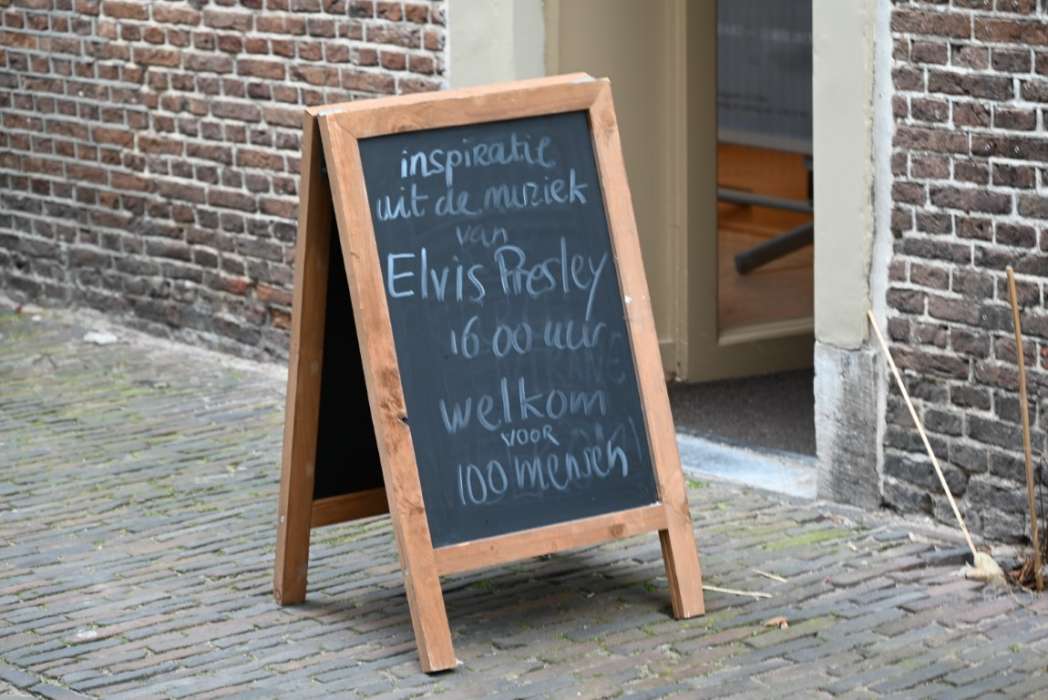 inspiratie
uit de muziek
van
Elvis Presley
16.00 uur
welkom
voor
100 mensen